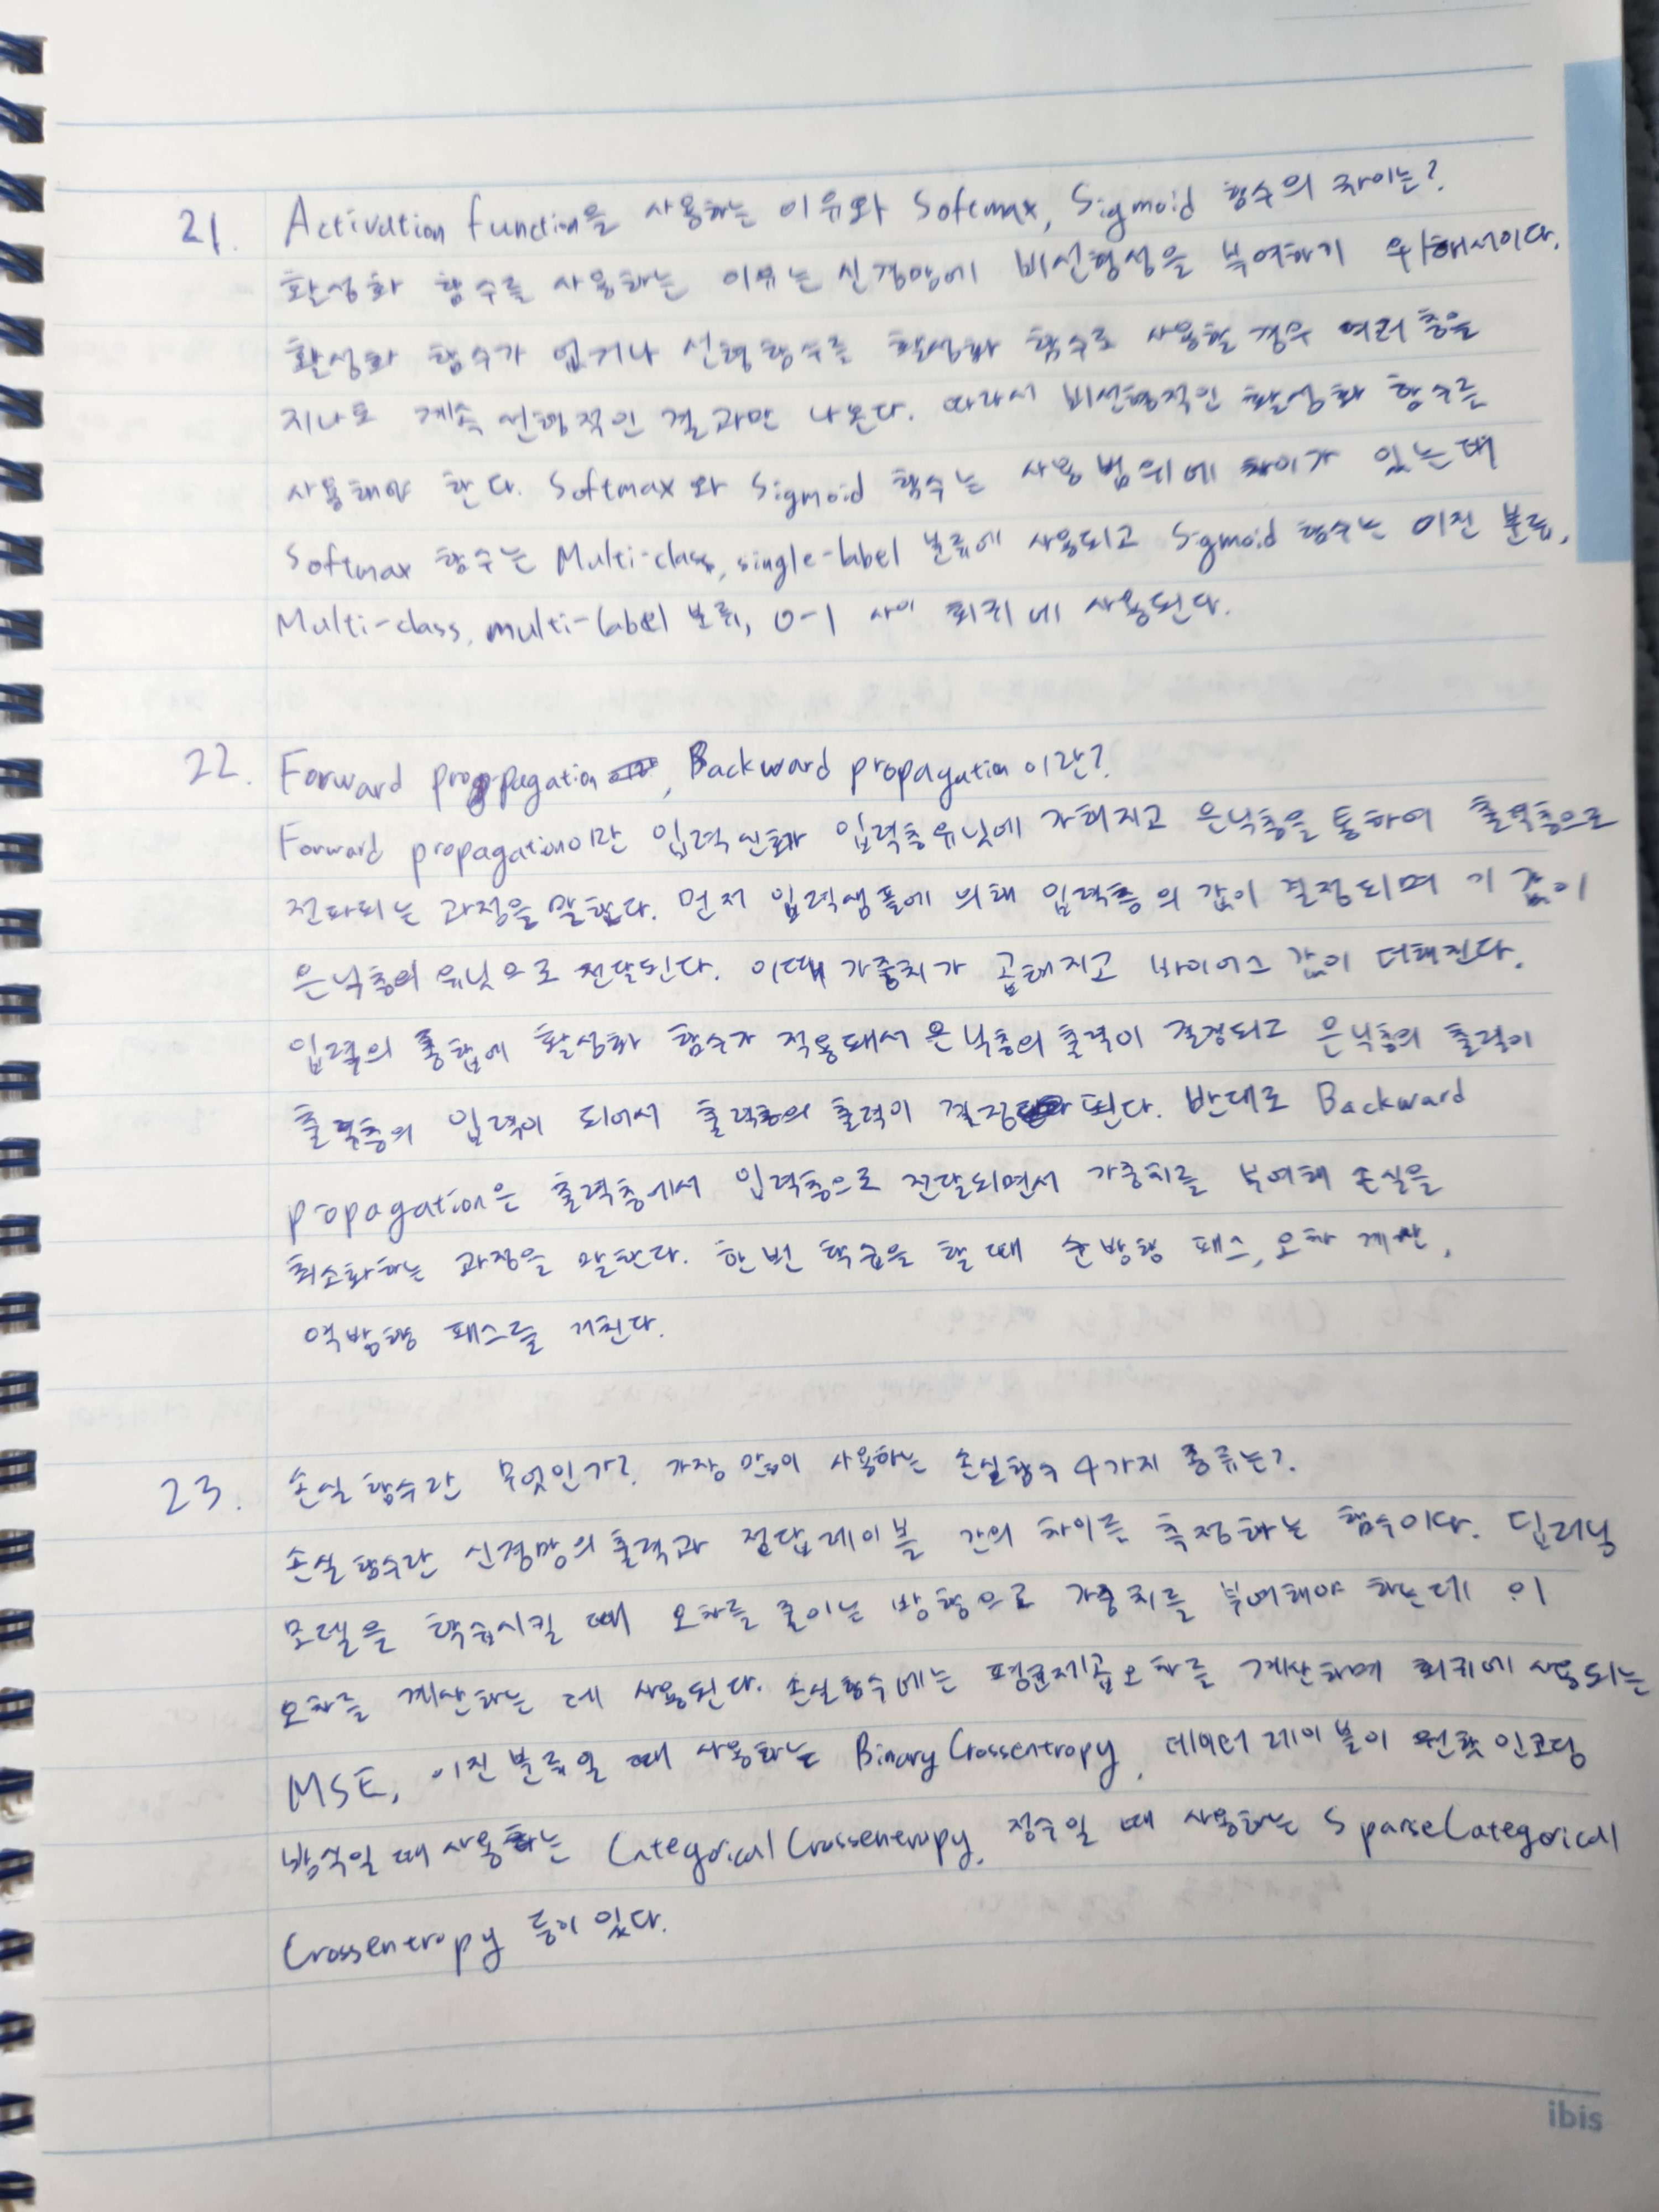 21. Activation function을 사용하는 이유와 Softmax, Sigmoid 함수의 차이는?
활성화 함수를 사용하는 이유는 신경망에 비선형성을 부여하기 위해서이다.
활성화 함수가 없거나 선형함수를 활성화 함수로 사용할 경우 여러 층을
지나도 계속 선형적인 결과만 나온다. 따라서 비선형적인 활성화 함수를
사용해야 한다. Softmax와 Sigmoid 함수는 사용 범위에 차이가 있는데
Softmax 함수는 Multi-class, single-label 분류에 사용되고 Sigmoid 함수는 이진 분류,
Multi-class, multi-label 분류, 0-1 사이 회귀에 사용된다.
22. Forward propagation, Backward propagation이란?
Forward propagation이란 입력 신호가 입력층유닛에 가해지고 은닉층을 통하여 출력층으로
전파되는 과정을 말한다. 먼저 입력샘플에 의해 입력층의 값이 결정되며 이 값이
은닉층의 유닛으로 전달된다. 이때 가중치가 곱해지고 바이어스 값이 더해진다.
입력의 총합에 활성화 함수가 적용돼서 은닉층의 출력이 결정되고 은닉층의 출력이
출력층의 입력이 되어서 출력층의 출력이 결정된다. 반대로 Backward
propagation은 출력층에서 입력층으로 전달되면서 가중치를 부여해 손실을
최소화하는 과정을 말한다. 한번 학습을 할 때 순방향 패스, 오차 계산,
역방향 패스를 거친다.
23. 손실 함수란 무엇인가? 가장 많이 사용하는 손실함수 4가지 종류는?
손실 함수란 신경망의 출력과 정답레이블 간의 차이를 측정하는 함수이다. 딥러닝
모델을 학습시킬 때 오차를 줄이는 방향으로 가중치를 부여해야 하는데 이
오차를 계산하는 데 사용된다. 손실함수에는 평균제곱오차를 계산하며 회귀에 사용되는
MSE, 이진 분류일 때 사용하는 BinaryCrossentropy, 데이터 레이블이 원핫 인코딩
방식일 때 사용하는 CategoricalCrossentropy, 정수일 때 사용하는 SparseCategorical
Crossentropy 등이 있다.
ibis